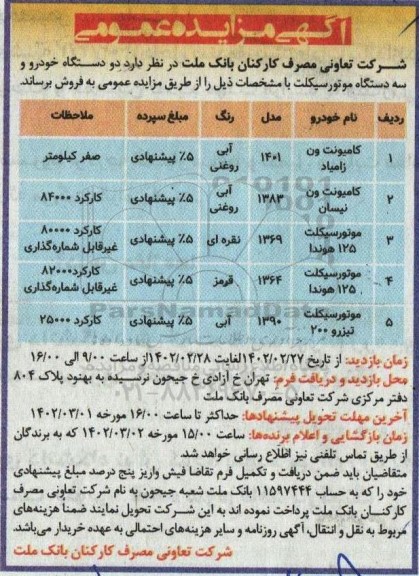 آگهی مزایده عمومی
شرکت تعاونی مصرف کارکنان بانک ملت در نظر دارد دو دستگاه خودرو و
سه دستگاه موتورسیکلت با مشخصات ذیل را از طریق مزایده عمومی به فروش برساند.
ردیف نام خودرو مدل رنگ مبلغ سپرده ملاحظات
۱ کامیونت ون زامیاد ۱۴۰۱ آبی روغنی ۵٪ پیشنهادی صفر کیلومتر
۲ کامیونت ون نیسان ۱۳۸۳ آبی روغنی ۵٪ پیشنهادی کارکرد ۸۴۰۰۰
۳ موتورسیکلت ۱۲۵ هوندا ۱۳۶۹ نقره ای ۵٪ پیشنهادی کارکرد ۸۰۰۰۰ غیرقابل شماره‌گذاری
۴ موتورسیکلت ۱۲۵ هوندا ۱۳۶۴ قرمز ۵٪ پیشنهادی کارکرد۸۲۰۰۰ غیرقابل شماره‌گذاری
۵ موتورسیکلت تیزرو ۲۰۰ ۱۳۹۰ آبی ۵٪ پیشنهادی کارکرد ۲۵۰۰۰
زمان بازدید: از تاریخ ۱۴۰۲/۰۲/۲۷لغایت ۱۴۰۲/۰۲/۲۸از ساعت ۹/۰۰ الی ۱۶/۰۰
محل بازدید و دریافت فرم: تهران خ آزادی خ جیحون نرسیده به بهنود پلاک ۸۰۴
دفتر مرکزی شرکت تعاونی مصرف بانک ملت
آخرین مهلت تحویل پیشنهادها: حداکثر تا ساعت ۱۶/۰۰ مورخه ۱۴۰۲/۰۳/۰۱
زمان بازگشایی و اعلام برنده‌ها: ساعت ۱۵/۰۰ مورخه ۱۴۰۲/۰۳/۰۲ که به برندگان
از طریق تماس تلفنی نیز اطلاع رسانی خواهد شد.
متقاضیان باید ضمن دریافت و تکمیل فرم تقاضا فیش واریز پنج درصد مبلغ پیشنهادی
خود را که به حساب ۱۱۵۹۷۴۴۴ بانک ملت شعبه جیحون به نام شرکت تعاونی مصرف
کارکنان بانک ملت پرداخت نموده اند به این شرکت تحویل نمایند ضمناً هزینه‌های
مربوط به نقل و انتقال، آگهی روزنامه و سایر هزینه‌های احتمالی به عهده خریدار می‌باشد.
شرکت تعاونی مصرف کارکنان بانک ملت